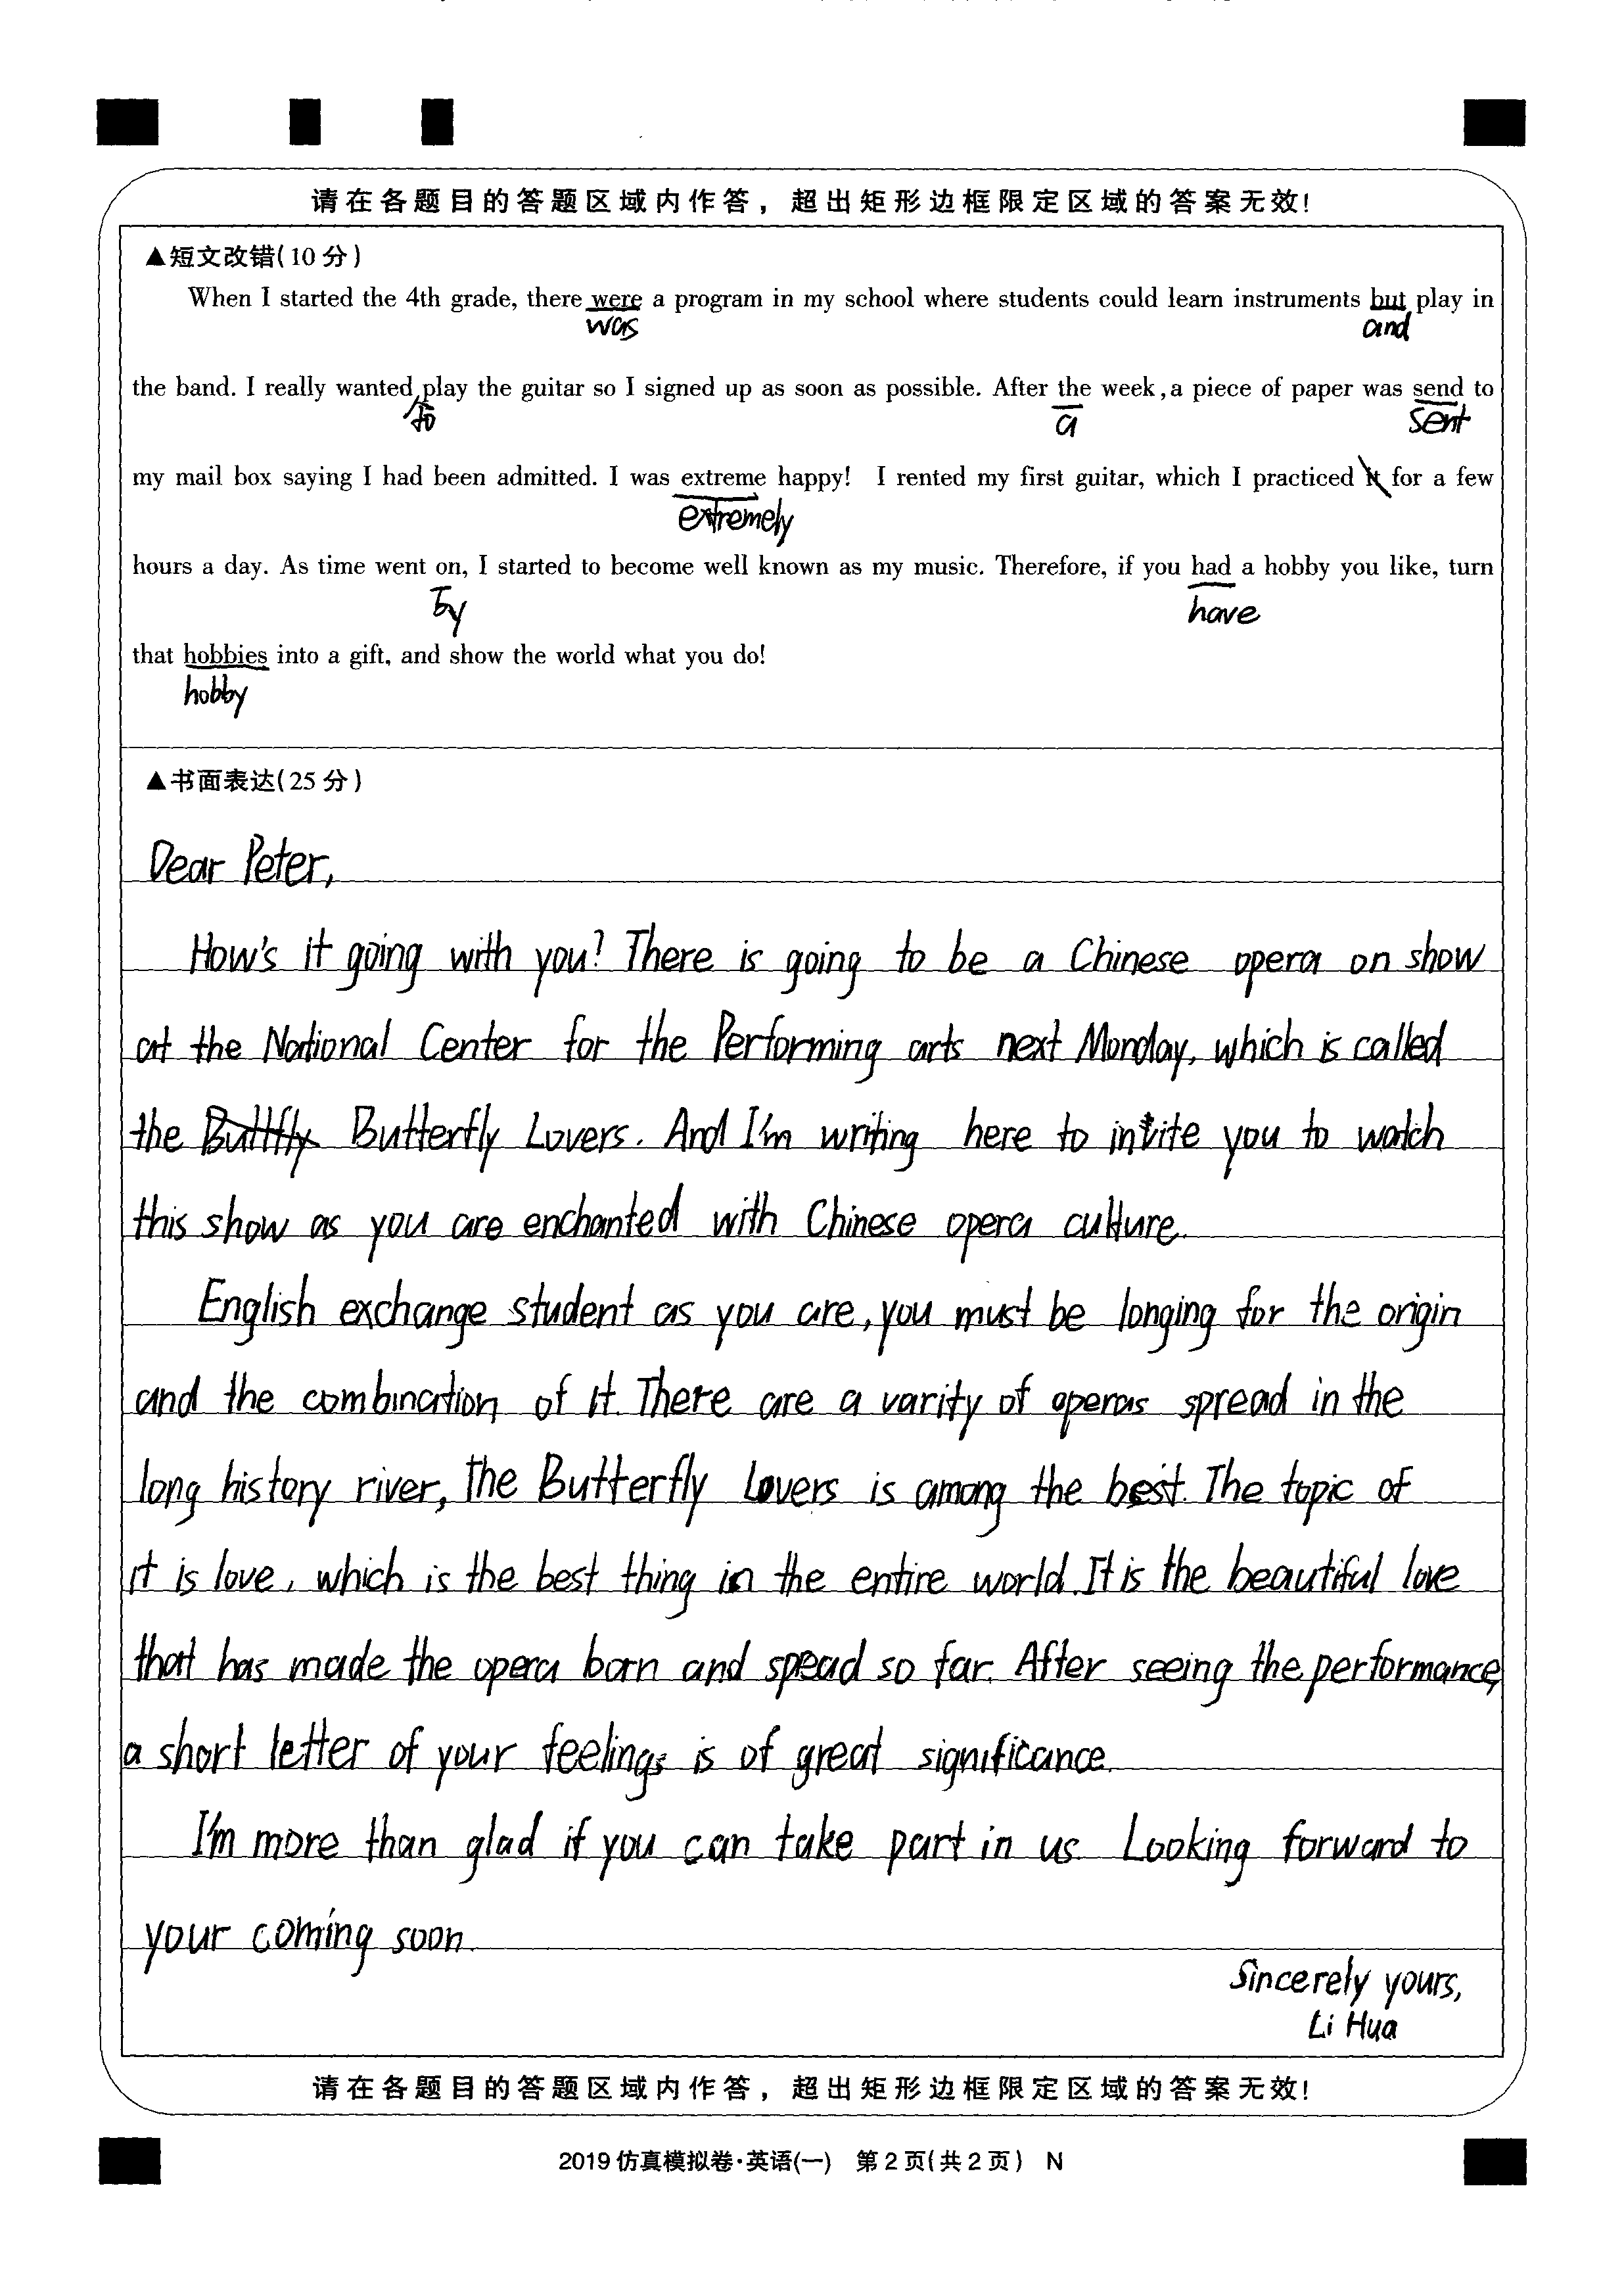 请在各题目的答题区域内作答，超出矩形边框限定区域的答案无效!
▲短文改错(10分)
When I started the 4th grade, there were a program in my school where students could learn instruments but play in
was and
the band. I really wanted play the guitar so I signed up as soon as possible. After the week, a piece of paper was send to
to a sent
my mail box saying I had been admitted. I was extreme happy! I rented my first guitar, which I practiced it for a few
extremely
hours a day. As time went on, I started to become well known as my music. Therefore, if you had a hobby you like, turn
by have
that hobbies into a gift, and show the world what you do!
hobby
▲书面表达(25分)
Dear Peter,
How's it going with you? There is going to be a Chinese opera on show
at the National Center for the Performing arts next Monday, which is called
the Buttfly Butterfly Lovers. And I'm writing here to invite you to watch
this show as you are enchanted with Chinese opera culture.
English exchange student as you are, you must be longing for the origin
and the combination of it. There are a varity of operas spread in the
long history river, The Butterfly Lovers is among the best. The topic of
it is love, which is the best thing in the entire world. It is the beautiful love
that has made the opera born and spread so far. After seeing the performance,
a short letter of your feelings is of great significance.
I'm more than glad if you can take part in us. Looking forward to
your coming soon.
Sincerely yours,
Li Hua
请在各题目的答题区域内作答，超出矩形边框限定区域的答案无效!
2019仿真模拟卷·英语(一) 第2页(共2页) N